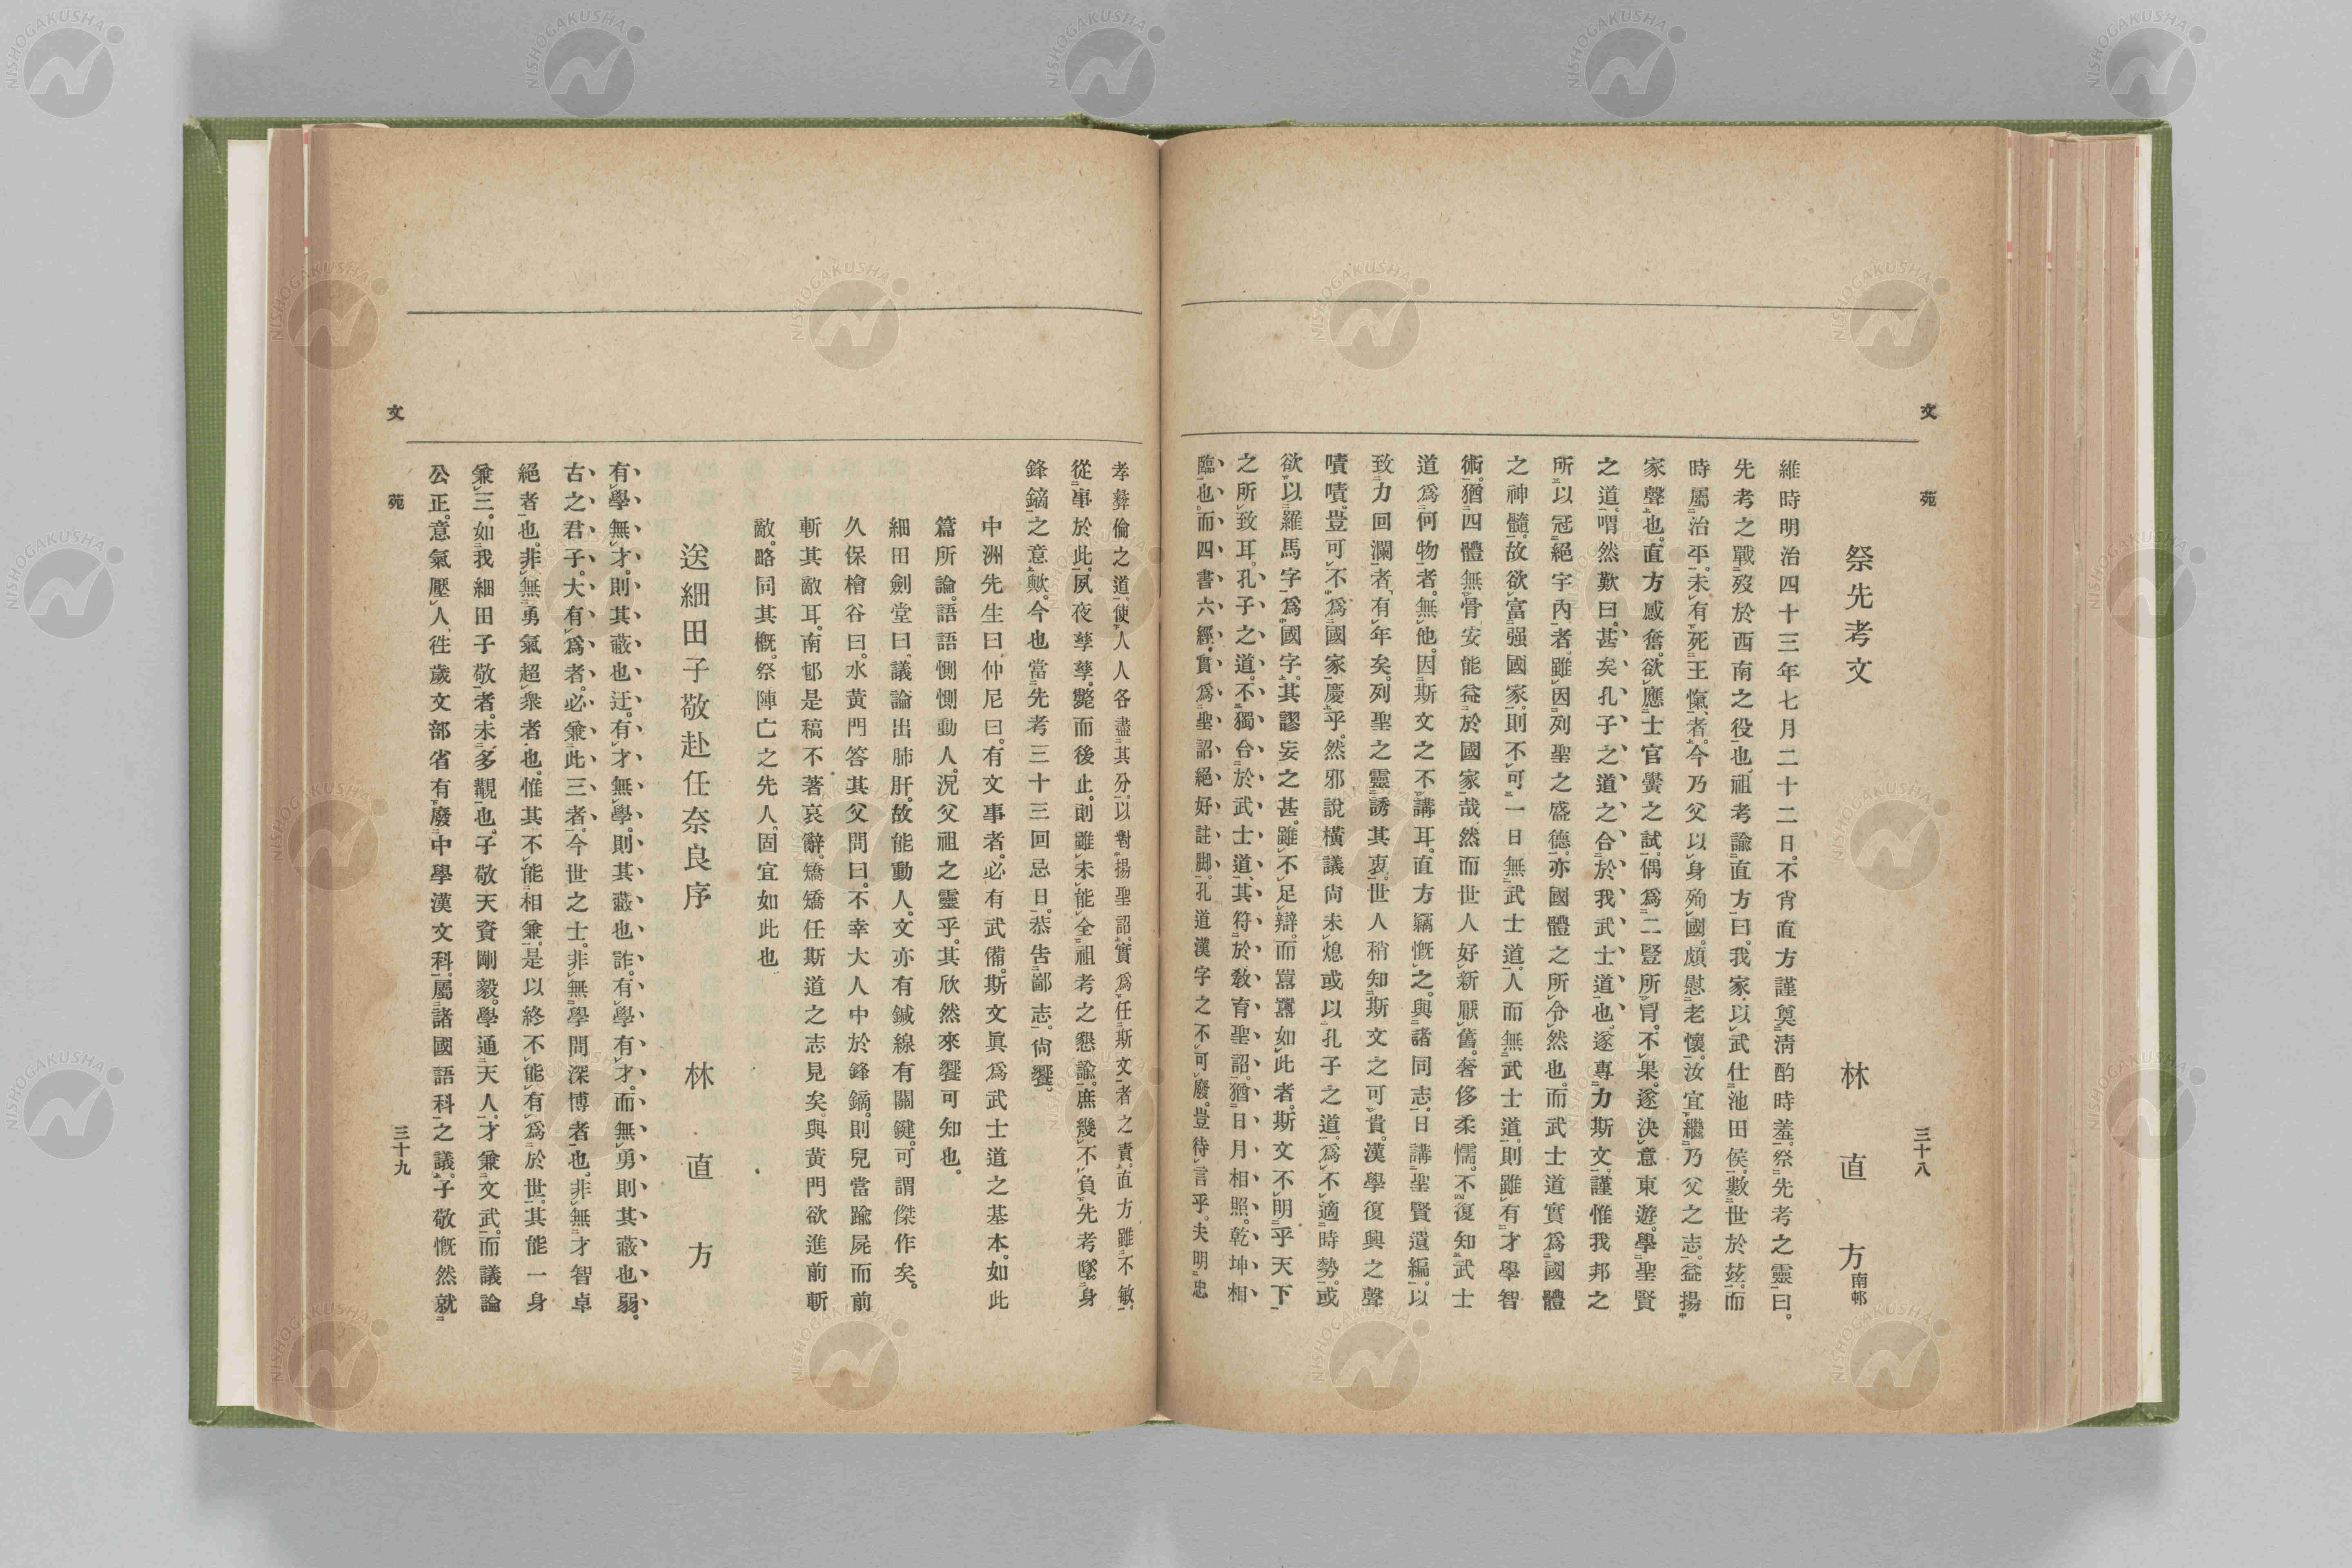 文苑
三十八
祭先考文
林直方南邨
維時明治四十三年七月二十二日。不肖直方謹奠淸酌時羞。祭先考之靈曰。
先考之戰歿於西南之役也。祖考諭直方曰。我家以武仕池田侯。數世於玆。而
時屬治平。未有死王愾者。今乃父以身殉國。頗慰老懷。汝宜繼乃父之志。益揚
家聲也。直方感奮。欲應士官黌之試。偶爲二豎所冐。不果。遂決意東遊。學聖賢
之道。喟然歎曰。甚矣孔子之道之合於我武士道也。遂專力斯文。謹惟我邦之
所以冠絕宇內者。雖因列聖之盛德。亦國體之所令然也。而武士道實爲國體
之神髓。故欲富强國家。則不可一日無武士道。人而無武士道。則雖有才學智
術。猶四體無骨。安能益於國家哉。然而世人好新厭舊。奢侈柔懦。不復知武士
道爲何物者。無他。因斯文之不講耳。直方竊慨之。與諸同志。日講聖賢遺編。以
致力回瀾者。有年矣。列聖之靈。誘其衷。世人稍知斯文之可貴。漢學復興之聲
嘖嘖。豈可不爲國家慶乎。然邪說橫議尙未熄。或以孔子之道。爲不適時勢。或
欲以羅馬字爲國字。其謬妄之甚。雖不足辯。而囂囂如此者。斯文不明乎天下
之所致耳。孔子之道。不獨合於武士道、其符於敎育聖詔。猶日月相照。乾坤相
臨也。而四書六經。實爲聖詔絕好註脚。孔道漢字之不可廢。豈待言乎。夫明忠
孝彝倫之道。使人人各盡其分。以對揚聖詔。實爲任斯文者之責。直方雖不敏
從事於此。夙夜孳孳。斃而後止。則雖未能全祖考之懇諭。庶幾不負先考墜身
鋒鏑之意歟。今也當先考三十三回忌日。恭吿鄙志。尙饗。
中洲先生曰。仲尼曰。有文事者。必有武備。斯文眞爲武士道之基本。如此
篇所論。語語惻惻動人。況父祖之靈乎。其欣然來饗可知也。
細田劍堂曰。議論出肺肝。故能動人。文亦有鍼線有關鍵。可謂傑作矣。
久保檜谷曰。水黃門答其父問曰。不幸大人中於鋒鏑。則兒當踰屍而前
斬其敵耳。南邨是稿不著哀辭。矯矯任斯道之志見矣。與黃門欲進前斬
敵。略同其槪。祭陣亡之先人。固宜如此也
送細田子敬赴任奈良序
林直方
有學無才。則其蔽也迂。有才無學。則其蔽也詐。有學有才。而無勇則其蔽也弱。
古之君子。大有爲者。必兼此三者。今世之士。非無學問深博者也。非無才智卓
絕者也。非無勇氣超衆者也。惟其不能相兼。是以終不能有爲於世。其能一身
兼三。如我細田子敬者。未多觀也。子敬天資剛毅。學通天人。才兼文武。而議論
公正。意氣壓人。徃歲文部省有廢中學漢文科。屬諸國語科之議。子敬慨然就
文苑
三十九